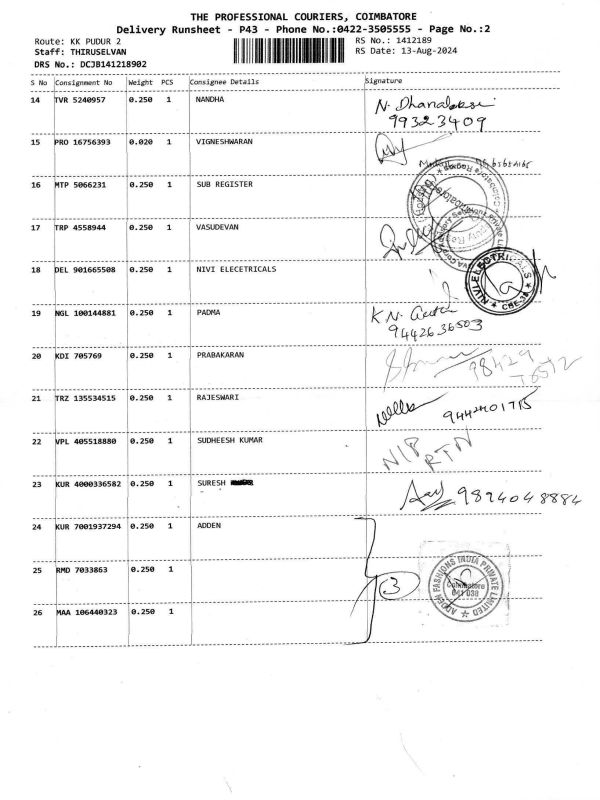 THE PROFESSIONAL COURIERS, COIMBATORE
Delivery Runsheet - P43 - Phone No.:0422-3505555 - Page No.:2
Route: KK PUDUR 2 RS No.: 1412189
Staff: THIRUSELVAN RS Date: 13-Aug-2024
DRS No.: DCJB141218902
S No Consignment No Weight PCS Consignee Details Signature
14 TVR 5240957 0.250 1 NANDHA
N. Dhanalakshmi
99323409
15 PRO 16756393 0.020 1 VIGNESHWARAN
16 MTP 5066231 0.250 1 SUB REGISTER
17 TRP 4558944 0.250 1 VASUDEVAN
18 DEL 901665508 0.250 1 NIVI ELECETRICALS
NIVI ELECTRICALS
CBE-38
19 NGL 100144881 0.250 1 PADMA
K.N.
9442636503
20 KDI 705769 0.250 1 PRABAKARAN
98429
76512
21 TRZ 135534515 0.250 1 RAJESWARI
9442401715
22 VPL 405518880 0.250 1 SUDHEESH KUMAR
NIP
RTN
23 KUR 4000336582 0.250 1 SURESH
9894048884
24 KUR 7001937294 0.250 1 ADDEN
25 RMD 7033863 0.250 1
3
ADDEN FASHIONS INDIA PRIVATE LIMITED
Coimbatore
641 038
26 MAA 106440323 0.250 1